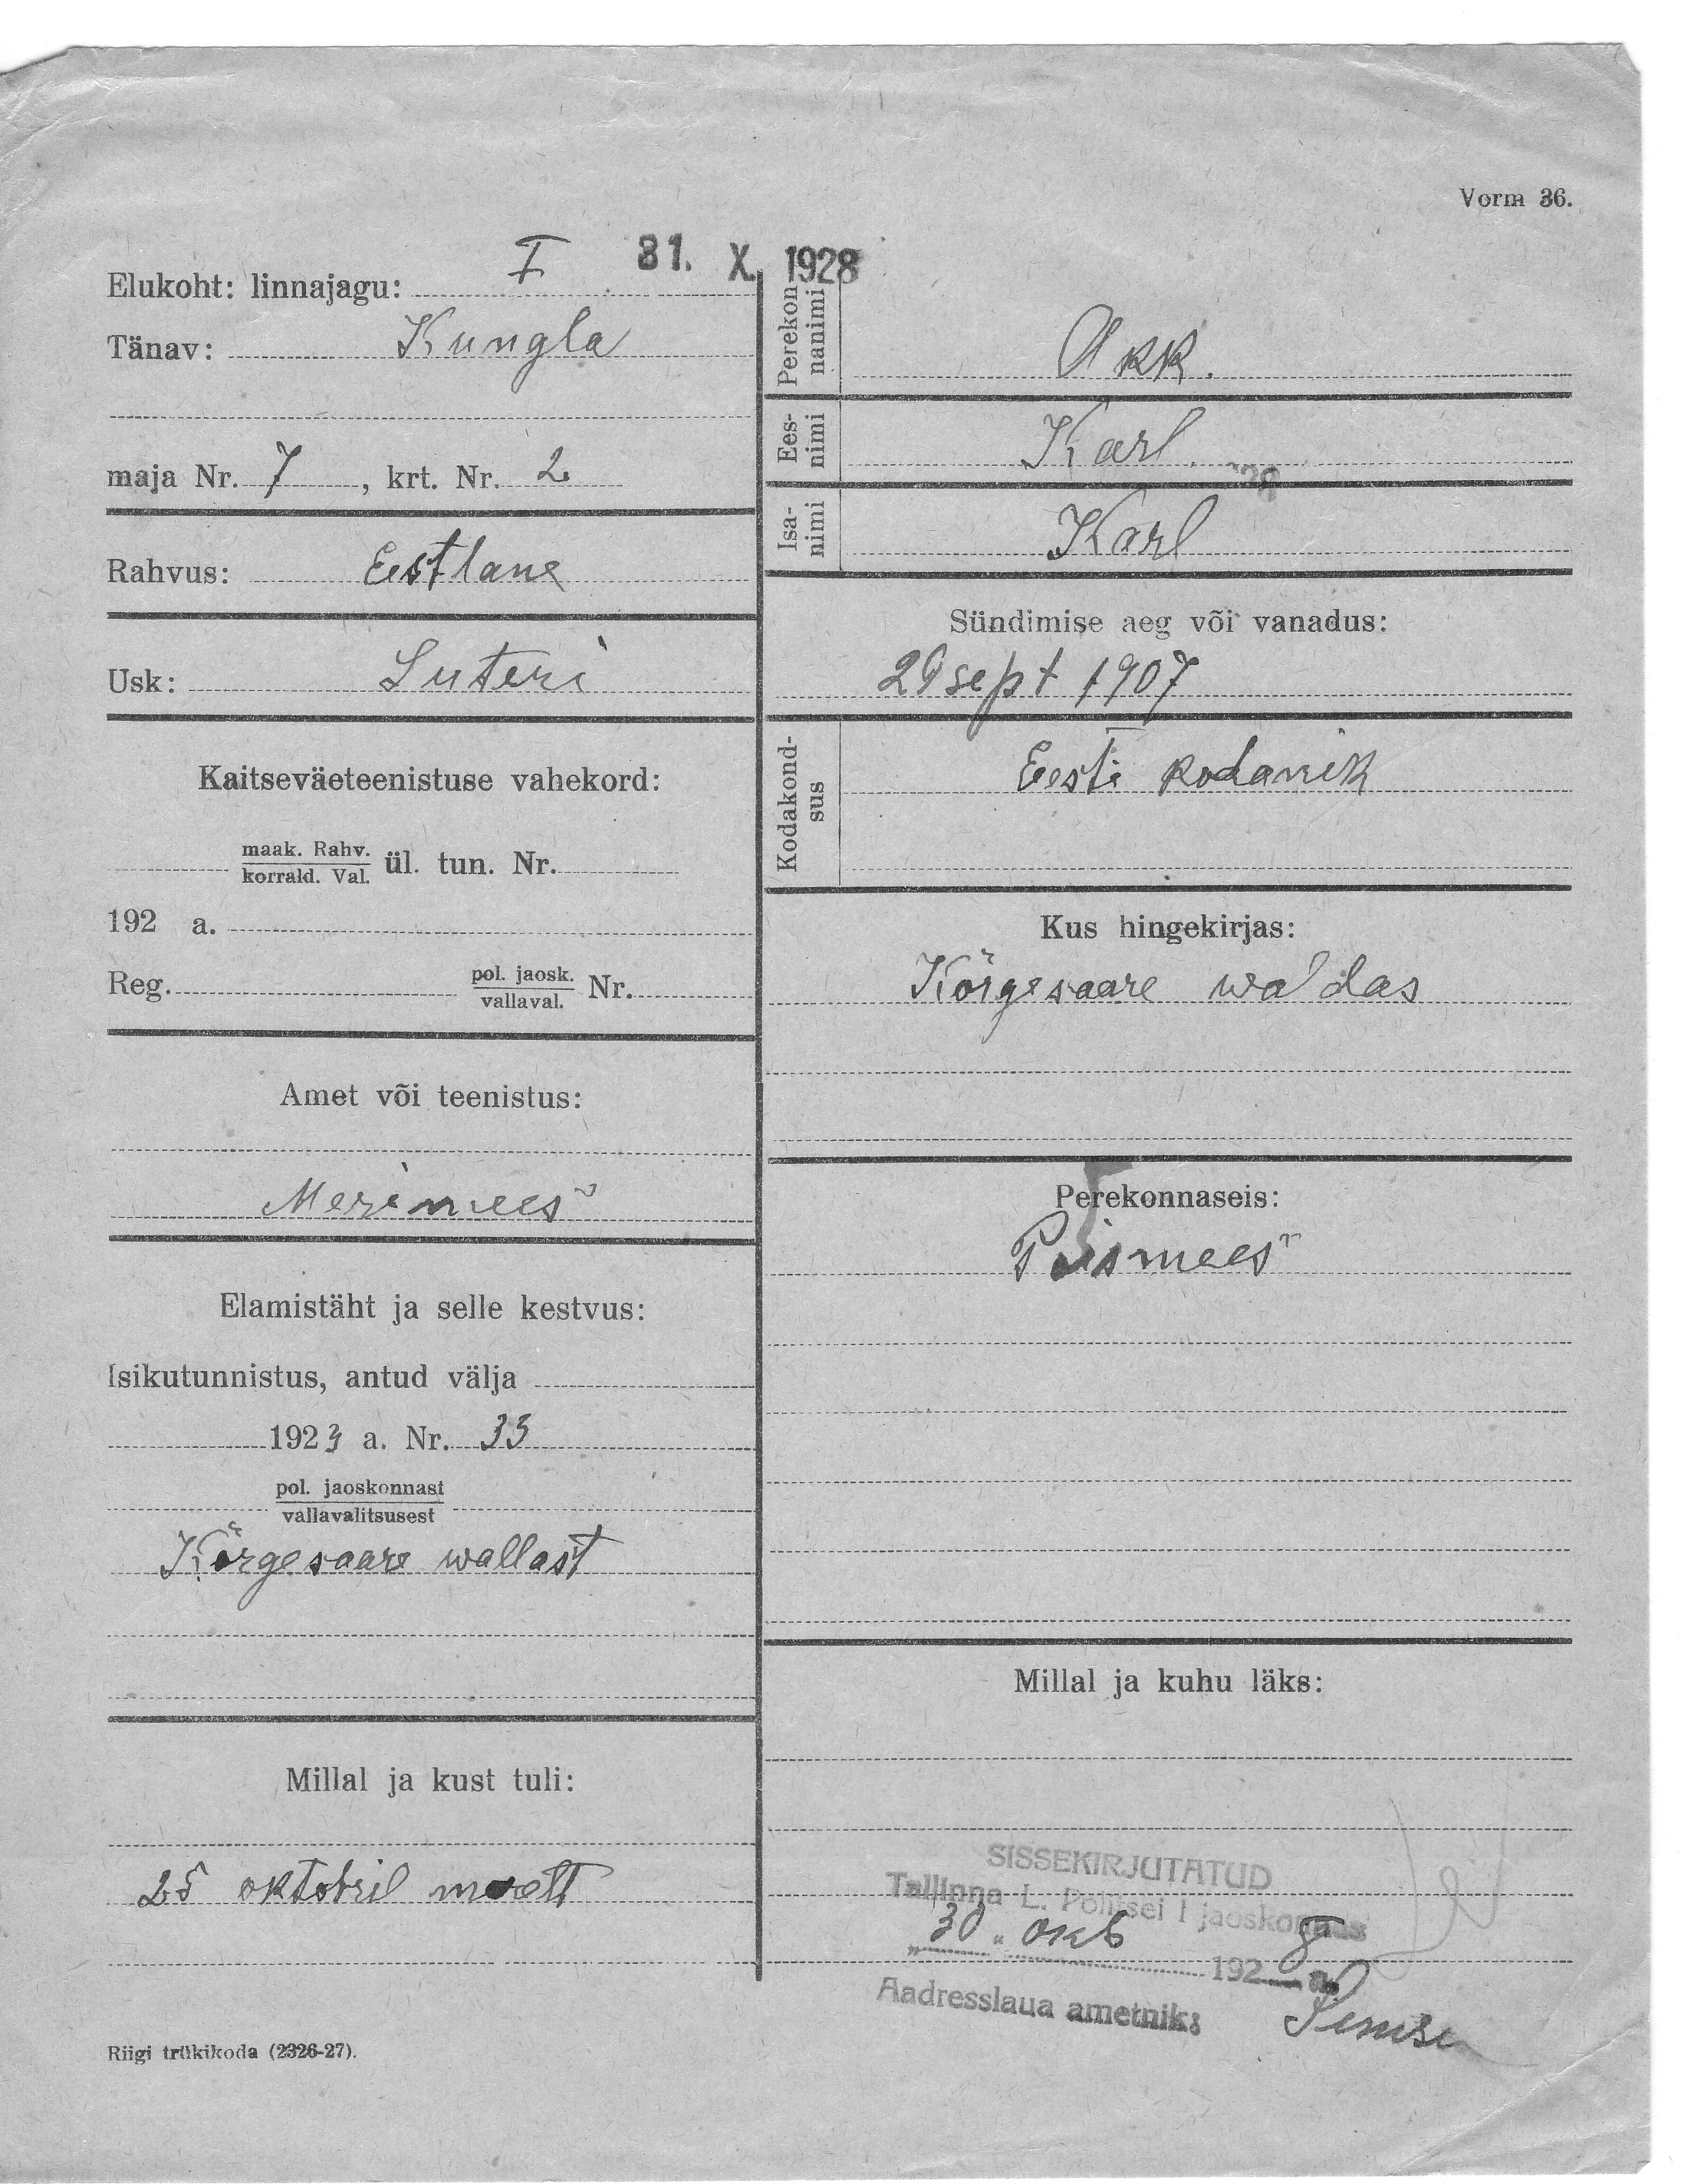 Vorm 36.
31. X. 1928
Elukoht: linnajagu: I
Tänav: Kungla
maja Nr. 7, krt. Nr. 2
Rahvus: Eestlane
Usk: Luteri
Kaitseväeteenistuse vahekord:
maak. Rahv.
korrald. Val. ül. tun. Nr.
192 a.
Reg. pol. jaosk.
vallaval. Nr.
Amet või teenistus:
Merimees
Elamistäht ja selle kestvus:
Isikutunnistus, antud välja
1923 a. Nr. 33
pol. jaoskonnast
vallavalitsusest
Kõrgesaare wallast
Millal ja kust tuli:
25 oktobril maalt
Riigi trükikoda (2326-27).
Perekon-
nanimi
Akk.
Ees-
nimi
Karl.
Isa-
nimi
Karl
Sündimise aeg või vanadus:
29 sept 1907
Kodakond-
sus
Eesti kodanik
Kus hingekirjas:
Kõrgesaare waldas
Perekonnaseis:
Poismees
Millal ja kuhu läks:
SISSEKIRJUTATUD
Tallinna L. Politsei I jaoskonnas
"30" okt 1928 a.
Aadresslaua ametnik: